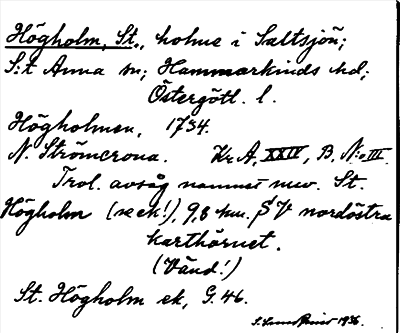 Högholm, St., holme i Saltsjön;
S:t Anna sn; Hammarkinds hd;
Östergötl. l.
Högholmen, 1734.
N. Strömcrona. Kr. A, XXIV, B, N:o III.
Trol. avsåg namnet nuv. St.
Högholm (se ek!), 9,8 km. SV nordöstra
karthörnet.
(Vänd!)
St. Högholm ek, G. 46.
1936.